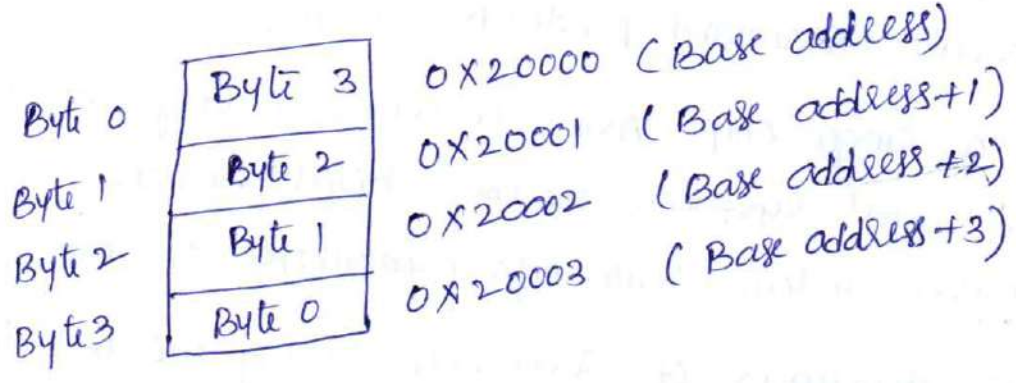 Byte 0 Byte 3 0X20000 (Base address)
Byte 1 Byte 2 0X20001 (Base address+1)
Byte 2 Byte 1 0X20002 (Base address+2)
Byte3 Byte 0 0X20003 (Base address+3)